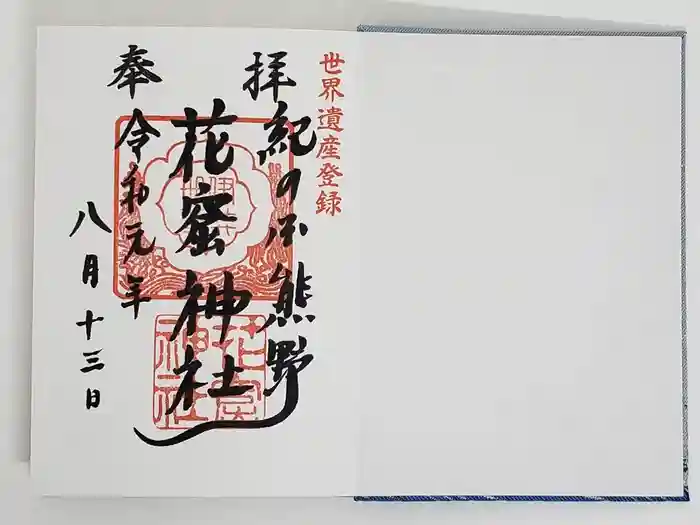 世界遺産登録
奉拝
紀の国熊野
花窟神社
令和元年
八月十三日